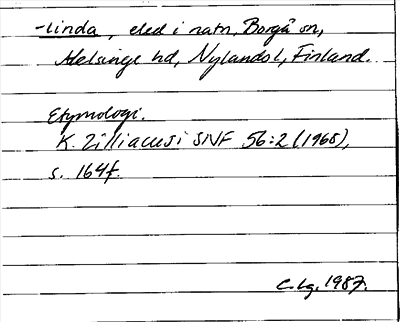 -linda, eled i natn, Borgå sn,
Helsinge hd, Nylands l, Finland.
Etymologi.
K. Zilliacus i SNF 56:2 (1968),
s. 164f.
C. Lg. 1987.